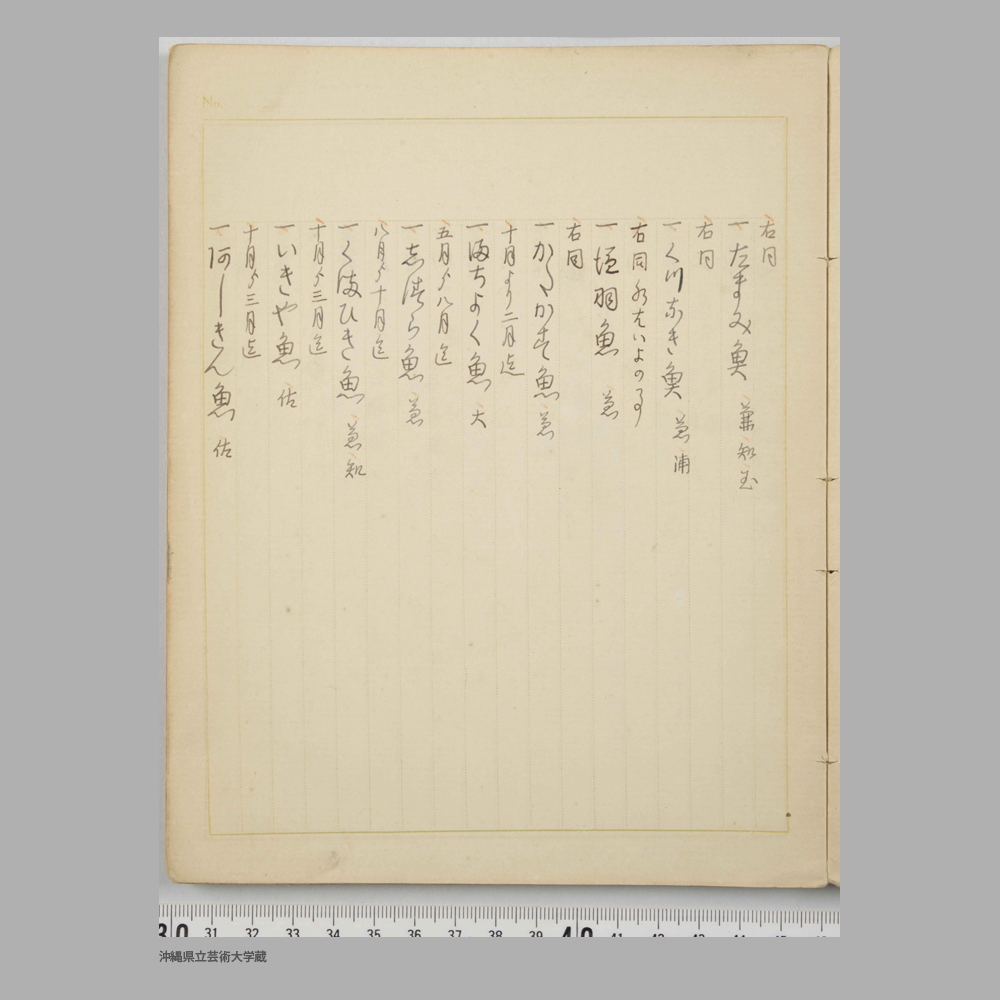 右同
一たまみ魚 兼 知 玉
右同
一く川なき魚 兼 浦
右同 いよの
一垣羽魚 兼
右同
一かたかす魚 兼
十月より二月迄
一満ちよく魚 大
五月より八月迄
一志ちら魚 兼
八月より十月迄
一く満ひき魚 兼 知
十月より三月迄
一いきや魚 佐
十月より三月迄
一阿しきん魚 佐
No.
31 32 33 34 35 36 37 38 39 40
沖縄県立芸術大学蔵